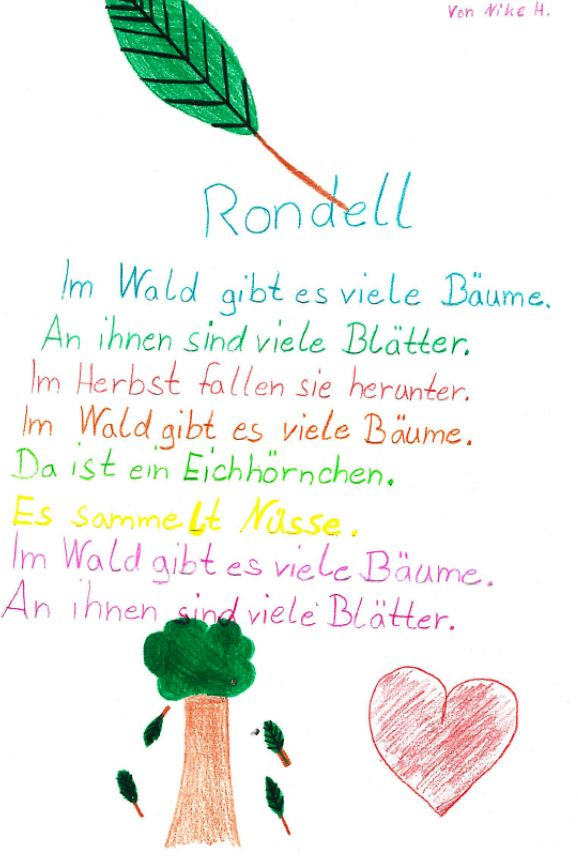 Von Nike H.
Rondell
Im Wald gibt es viele Bäume.
An ihnen sind viele Blätter.
Im Herbst fallen sie herunter.
Im Wald gibt es viele Bäume.
Da ist ein Eichhörnchen.
Es sammelt Nüsse.
Im Wald gibt es viele Bäume.
An ihnen sind viele Blätter.